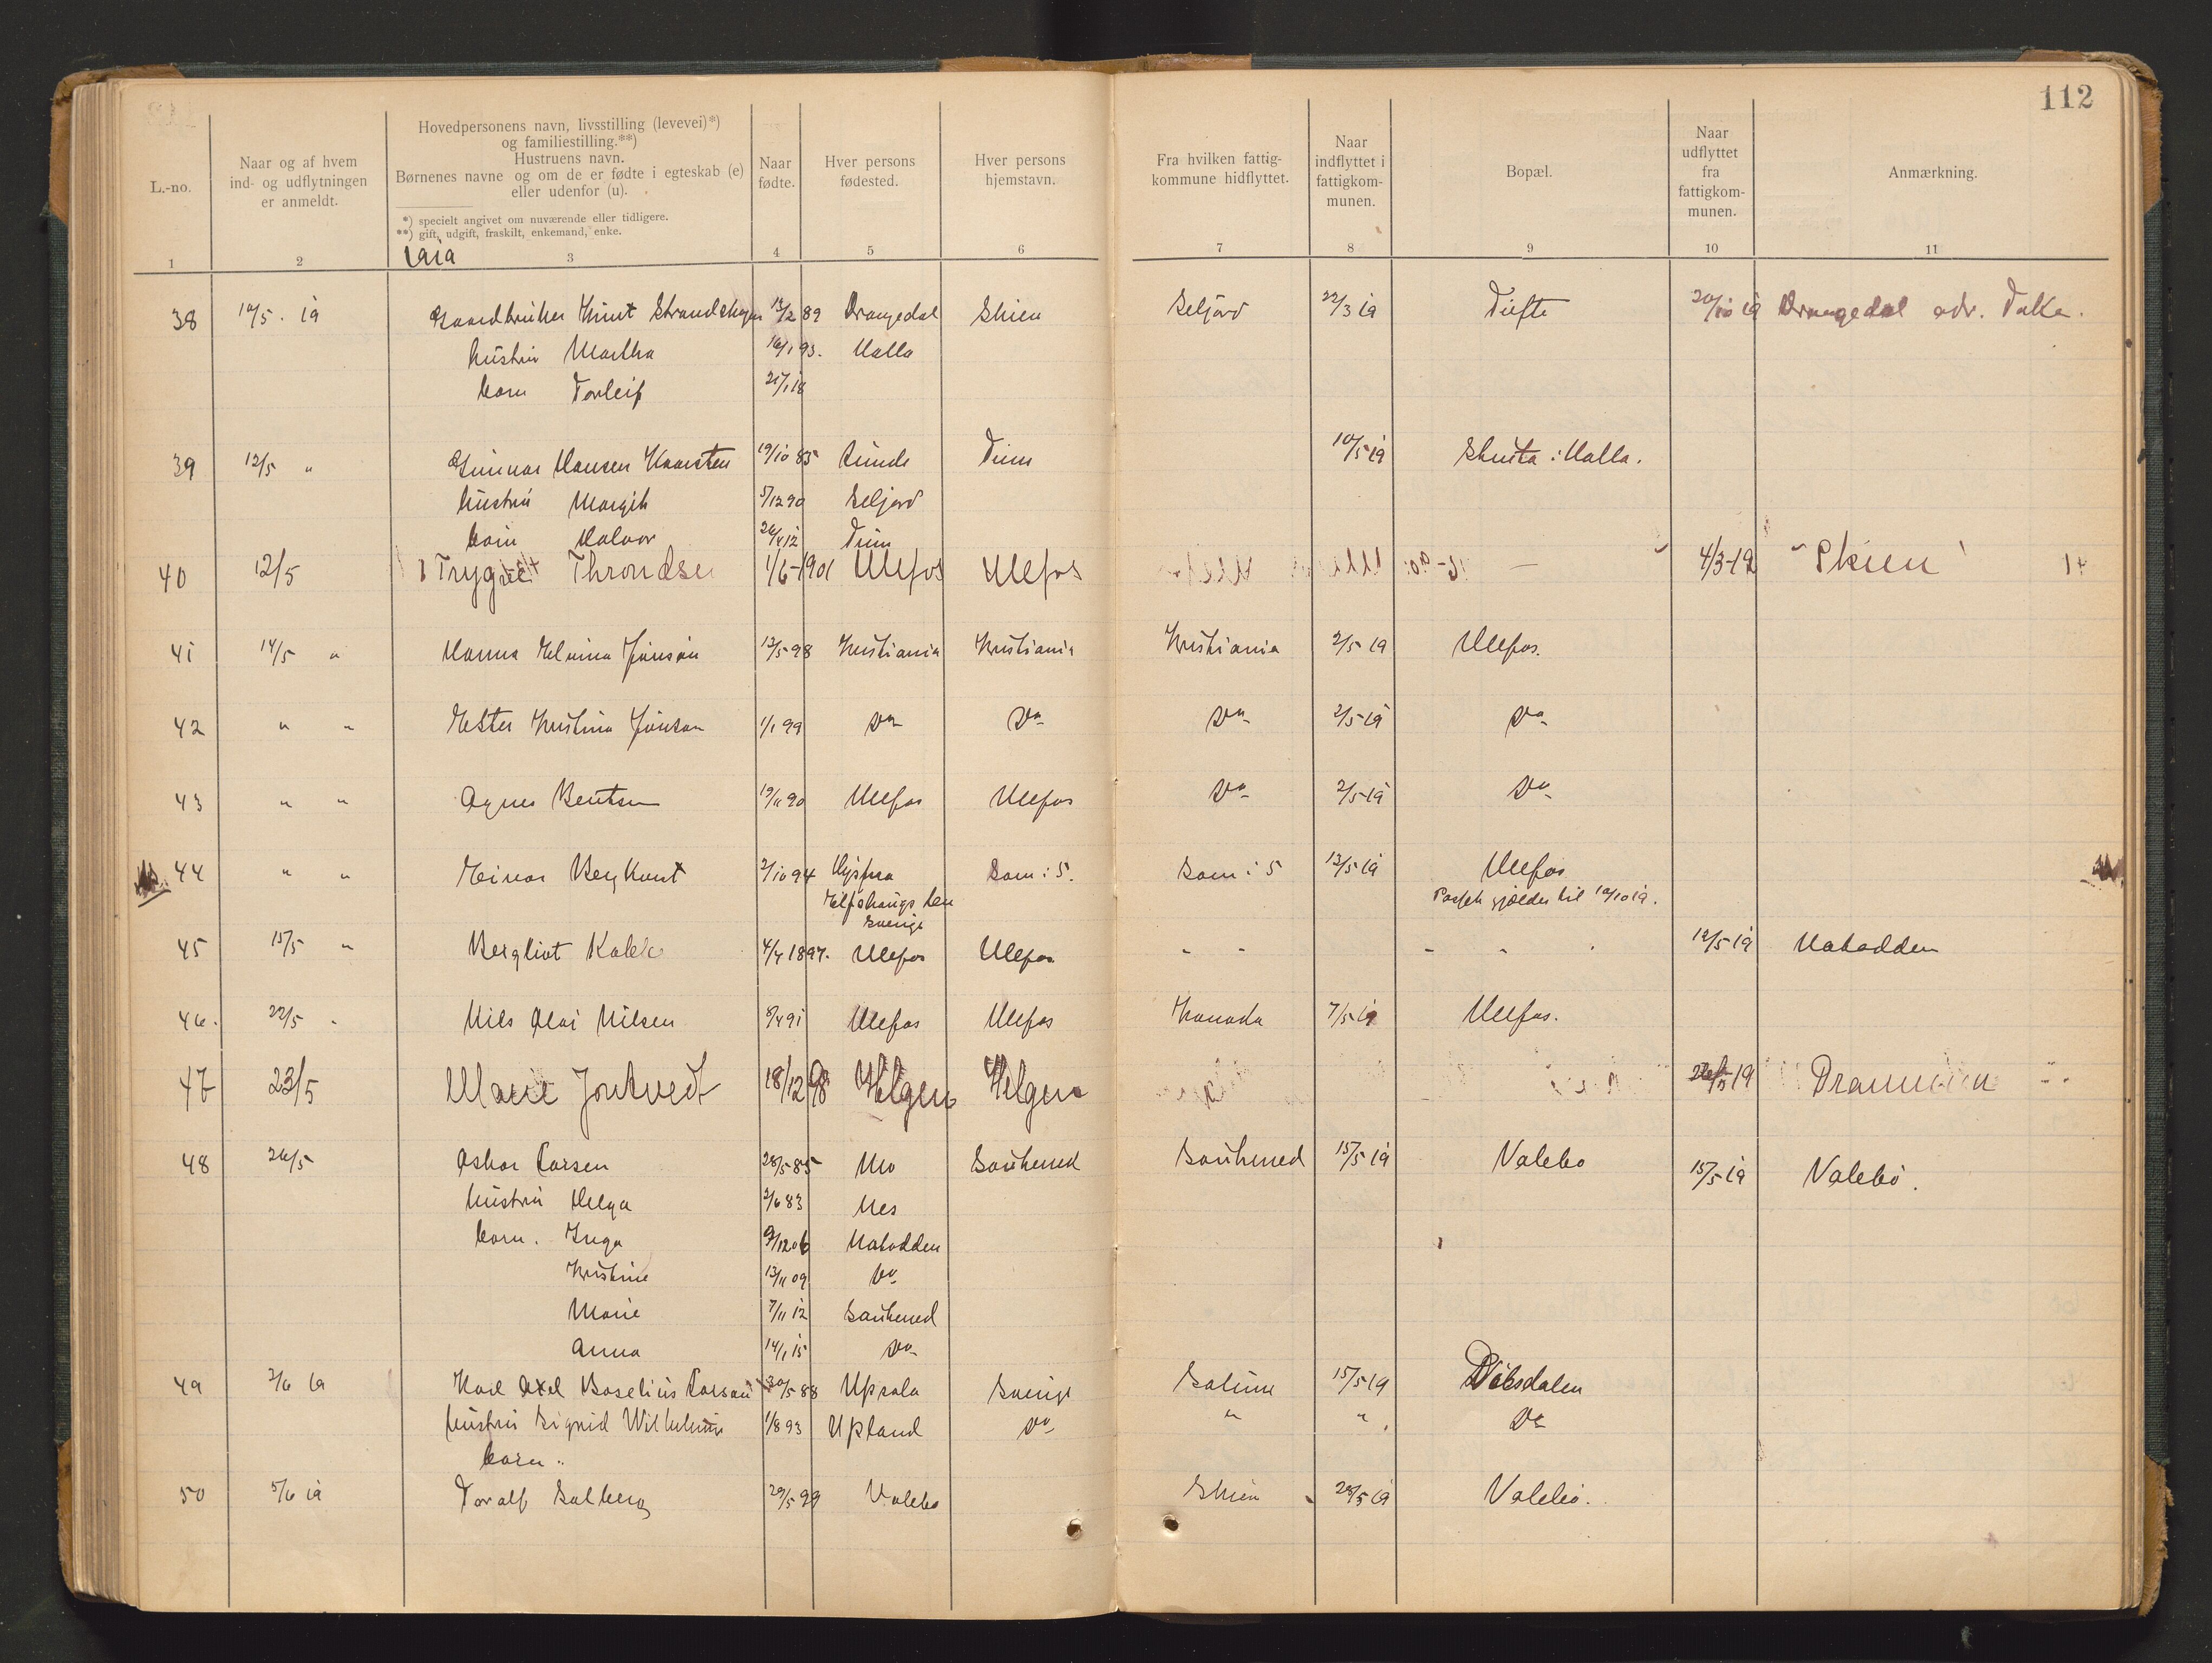 112
L.-no.
Naar og af hvem
ind- og udflytningen
er anmeldt.
Hovedpersonens navn, livsstilling (levevei)*)
og familiestilling.**)
Hustruens navn.
Børnenes navne og om de er fødte i egteskab (e)
eller udenfor (u).
*) specielt angivet om nuværende eller tidligere.
**) gift, udgift, fraskilt, enkemand, enke.
Naar
fødte.
Hver persons
fødested.
Hver persons
hjemstavn.
Fra hvilken fattig-
kommune hidflyttet.
Naar
indflyttet i
fattigkom-
munen.
Bopæl.
Naar
udflyttet
fra
fattigkom-
munen.
Anmærkning.
1 2 1919 3 4 5 6 7 8 9 10 11
38 10/5 . 19 Gaardbruker Knut 12/2 89 Drangedal Skien Seljord 22/3 19 Tufte 20/10 19 Drangedal adr. Toke.
hustru Martha 16/1 93. Holla
barn Torleif 21/1 18
39 12/5 " Gunnar Hansen Kaasten 19/10 85 Lunde Finn 10/5 19 Holla.
hustru Margit 5/12 90 Seljord
barn Halvor 12
40 12/5 Trygve Throndsen 1/6-1901 Ulefos Ulefos 4/3-19 Skien
41 14/5 " Hanna Elvina Jonson 13/5 98 Kristiania Kristiania Kristiania 2/5 19 Ulefos.
42 " " Ester Kristina Jonson 1/1 99 Do Do Do 2/5 19 Do
43 " " Agnes Bentsen 19/11 90 Ulefos Ulefos Do 2/5 19 Do
44 " " Einar Berg 2/10 94 Som i 5. Som i 5 13/5 19 Ulefos
Sverige
Passet gjælder til 10/10 19.
45 15/5 " Bergliot 4/4 1897. Ulefos Ulefos - - - - 12/5 19 Notodden
46. 22/5 " Nils Olai Nilsen 8/4 91 Ulefos Ulefos Kanada 7/5 19 Ulefos.
47 23/5 Marie Jontvedt 18/12 98 Helgen Helgen 19 Drammen
48 26/5 Oskar Larsen 28/5 85 Mo Sauherred Sauherred 15/5 19 Valebø 15/5 19 Valebø.
hustru Helga 2/6 83 Nes
barn. Inga 9/12 06 Notodden
Kristine 13/11 09 Do
Marie 7/11 12 Sauherred
Anna 14/1 15 Do
49 2/6 19 Karl Axel Boselius Larson 30/5 88 Upsala Sverige Solum 15/5 19
hustru Sigrid Wilhelmine 1/8 93 Upland Do " " . Do
barn "
50 5/6 19 Toralf Solberg 29/5 99 Valebø Skien 28/5 19 Valebø.